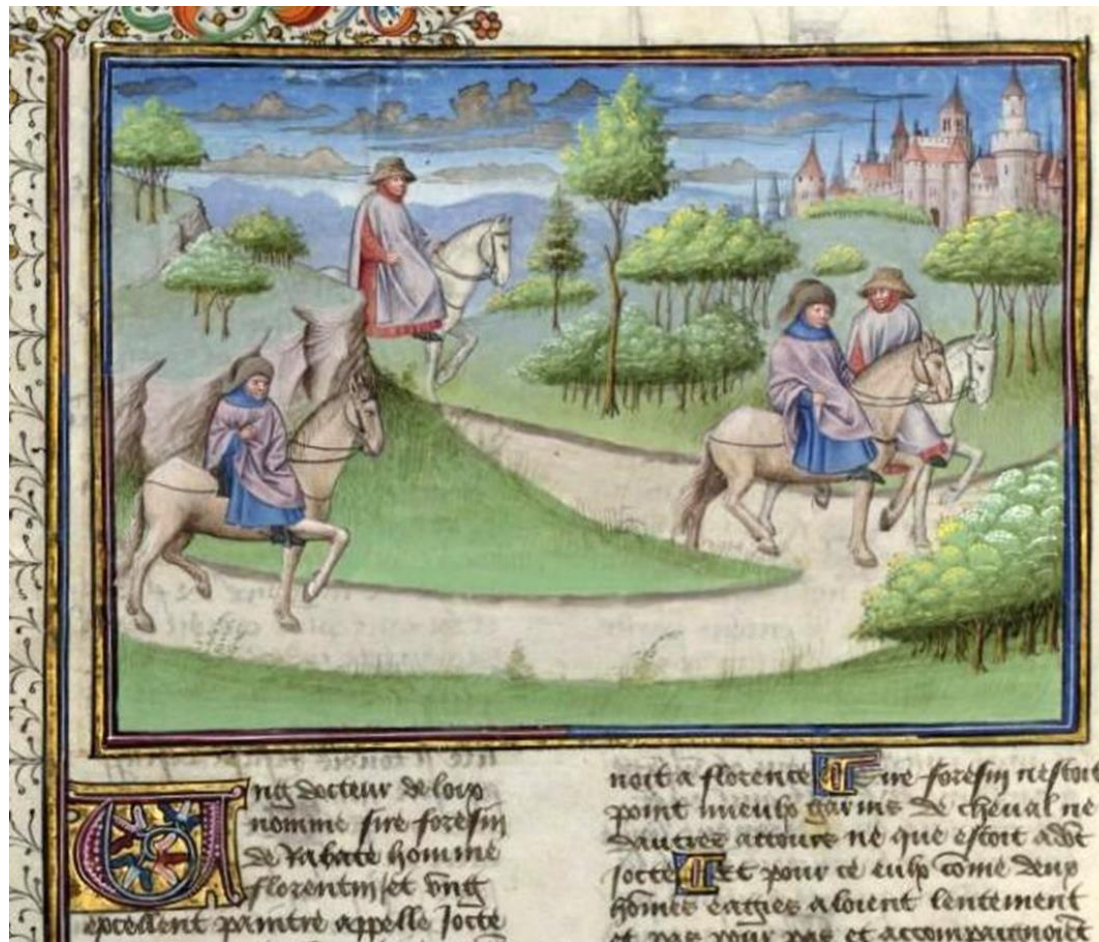 Ung docteur de loys
nomme sire foresin
de Rabate homme
florentin et ung
excellent paintre appelle Jotte
noit a florence Sire foresin nestoit
point mieulx garnis de cheval ne
dautres attours ne que estoit adōt
jotte Et pour ce eulx cōme deux
hōmes eagies aloient lentement
et pas pour pas et accompaignoiēt